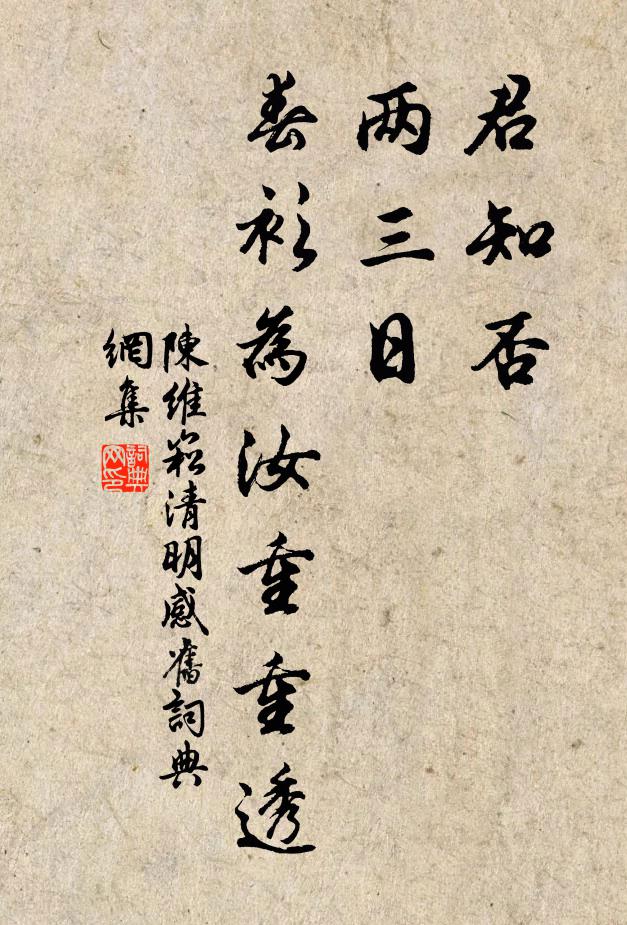 君知否
两三日
春衫為汝重重透
陳維崧清明感舊詞典
網集
詞典
网印